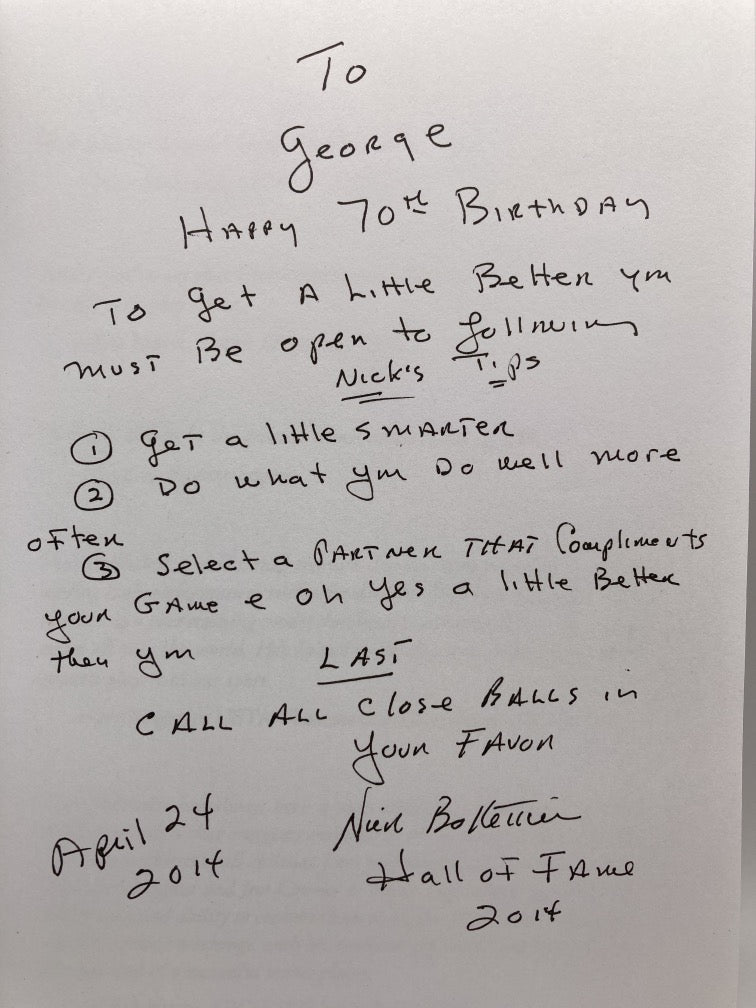 To
George
HAPPY 70th BIRTHDAY
To get A Little Better you
must Be open to following
Nick's Tips
① get a little SMARTER
② Do what you Do well more
often
③ Select a PARTNER THAT Compliments
your GAme & oh yes a little Better
then you
LAST
CALL ALL Close BALLS in
your FAVOR
April 24
2014
Nick Bollettieri
Hall of FAme
2014